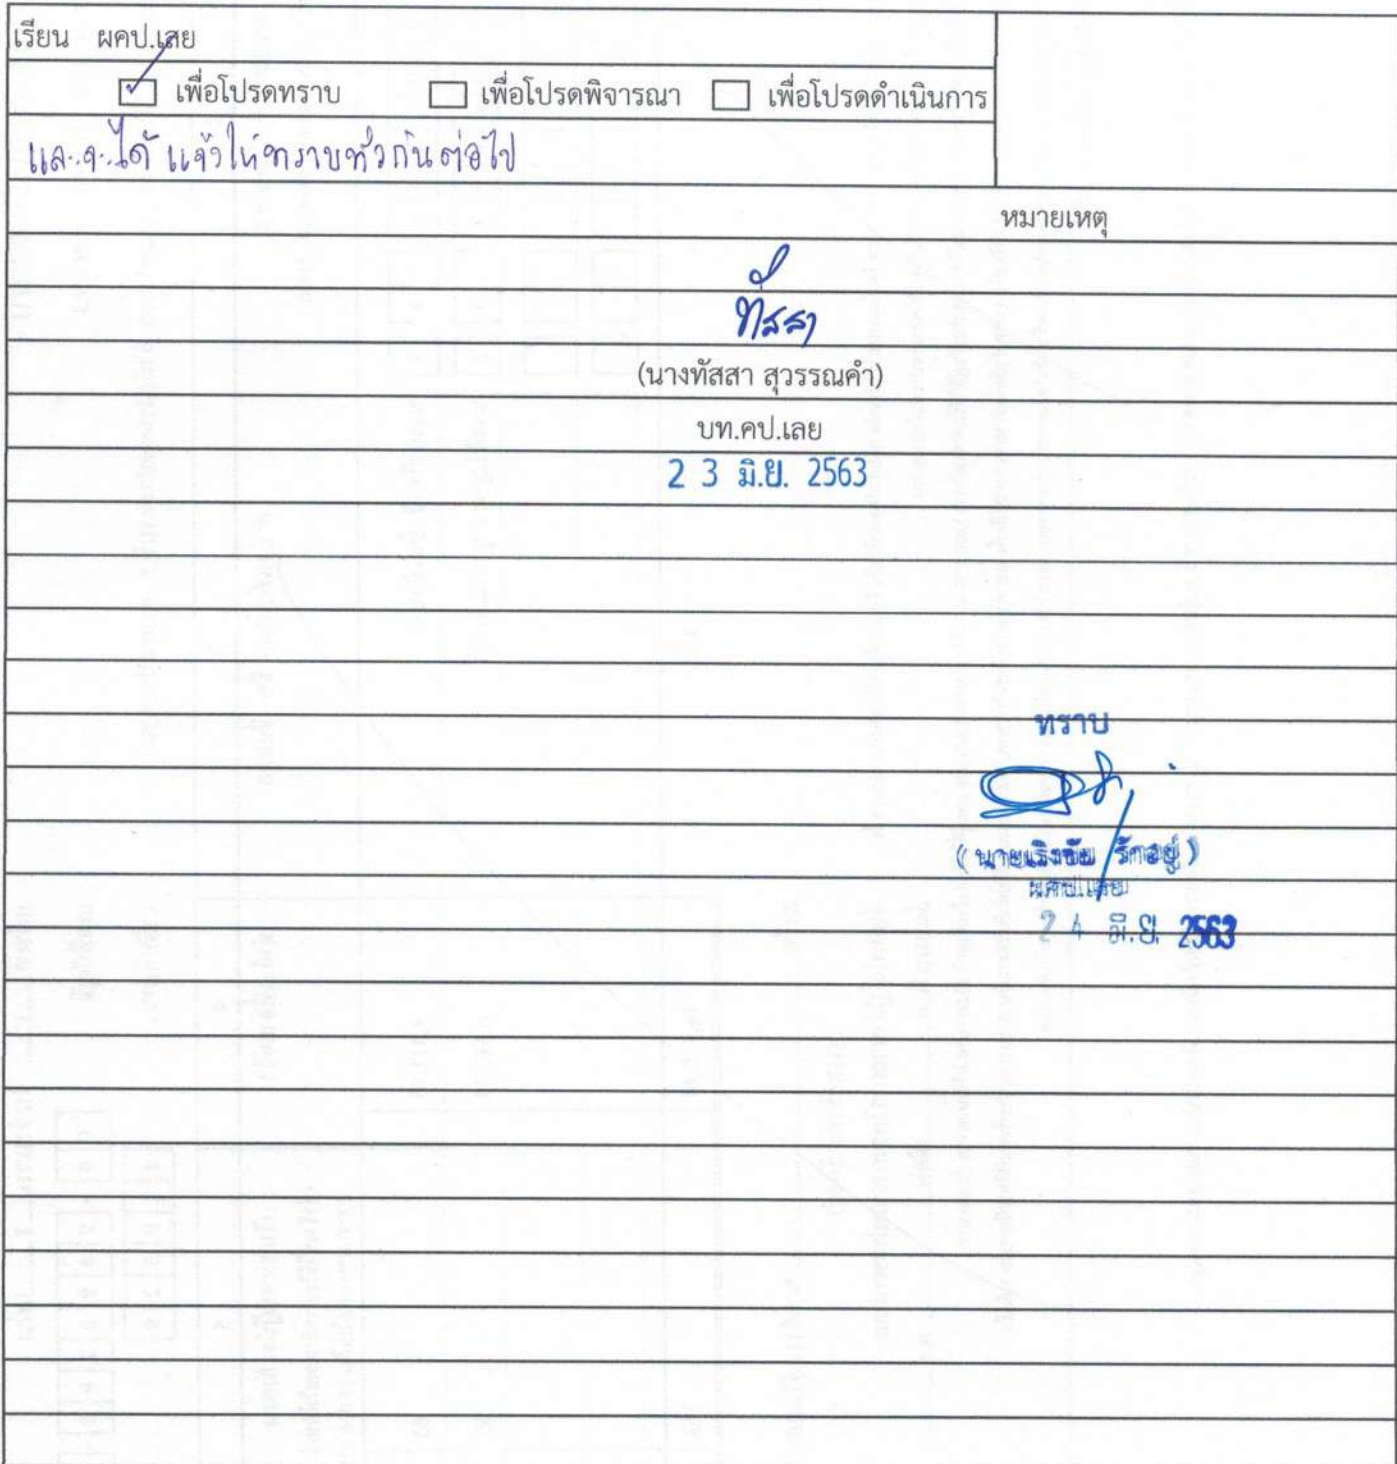 เรียน ผคป.เลย
เพื่อโปรดทราบ เพื่อโปรดพิจารณา เพื่อโปรดดำเนินการ
และจะได้แจ้งให้ทราบทั่วกันต่อไป
หมายเหตุ
ทัสสา
(นางทัสสา สุวรรณคำ)
บท.คป.เลย
2 3 มิ.ย. 2563
ทราบ
(นายเริงชัย รักอยู่)
ผคป.เลย
2 4 มิ.ย. 2563